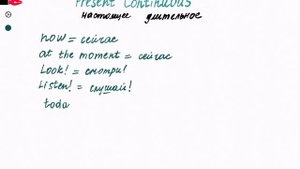 Present Continuous
настоящее длительное
now = сейчас
at the moment = сейчас
Look! = смотри!
Listen! = слушай!
toda